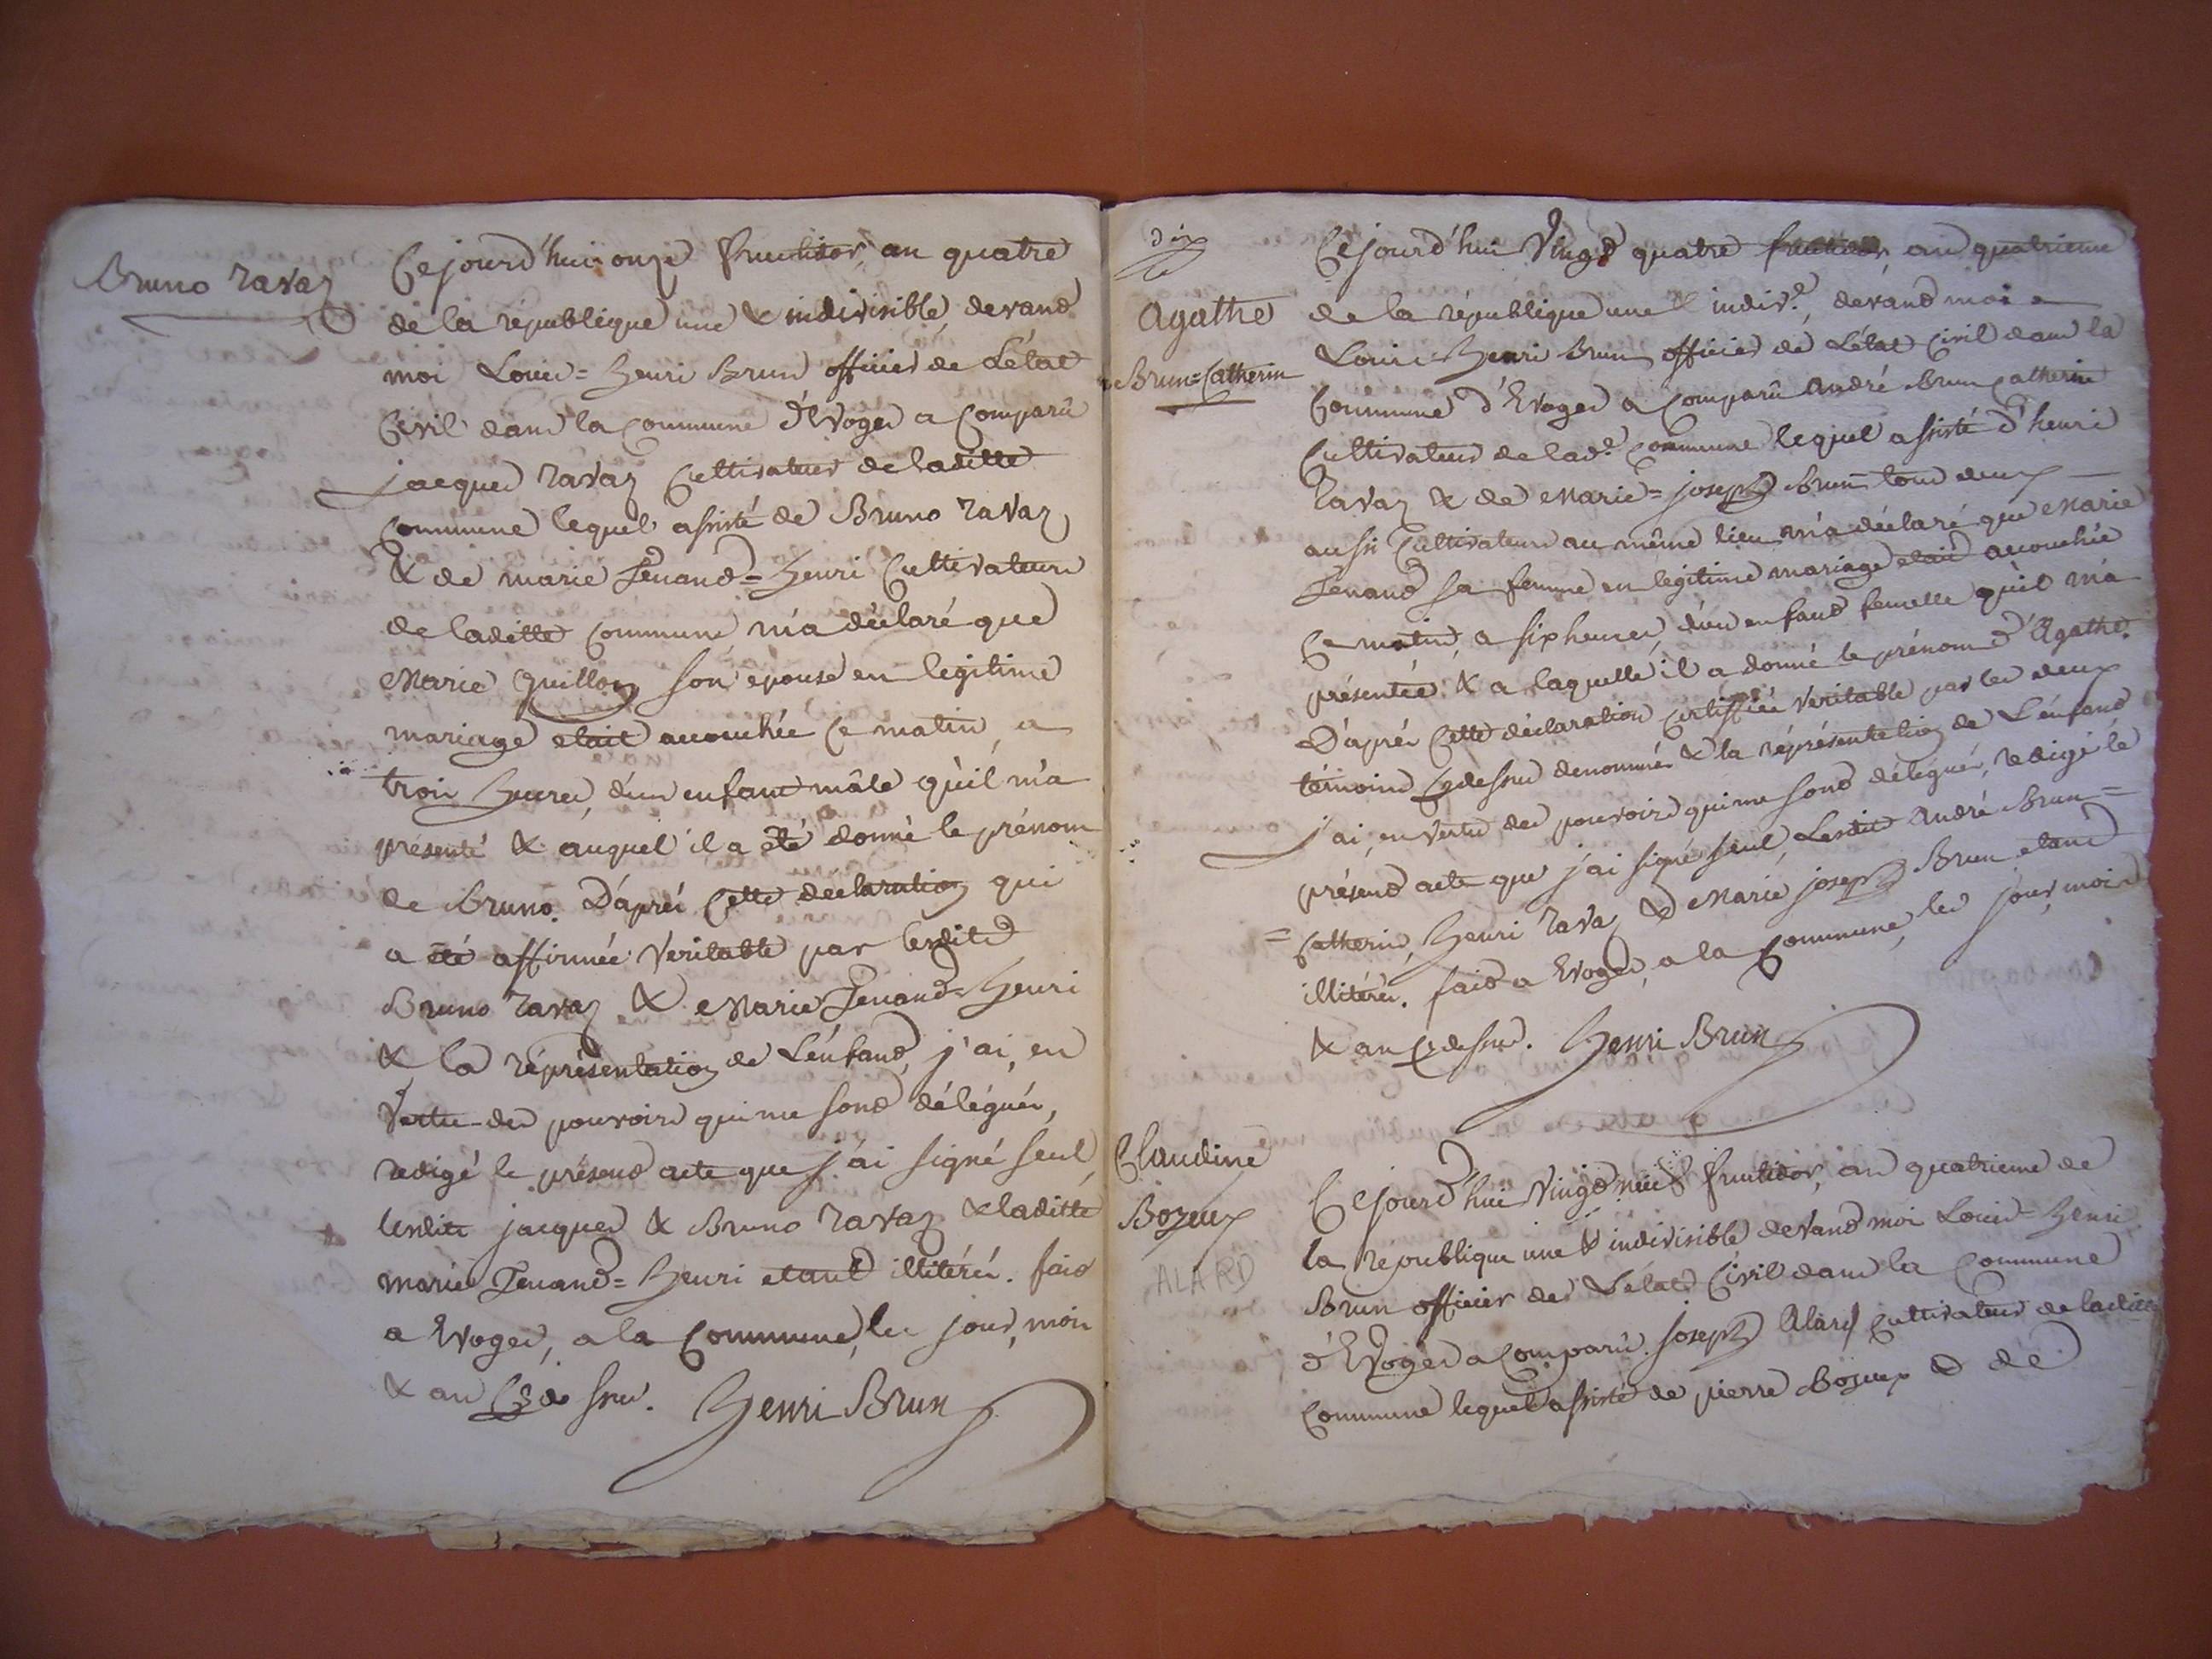 Bruno ravaz
Cejourd'hui onze fructidor, an quatre
de la république une & indivisible, devand
moi Louis=henri Brun officier de L'état
Civil dans la Commune d'Evoges a Comparû
jacques ravaz Cultivateur de laditte
Commune lequel assisté de Bruno ravaz
& de marie Jenand=henri Cultivateurs
de laditte Commune, m'a déclaré que
Marie guilloz son epouse en legitime
mariage etait accouchée Ce matin, a
trois heures, d'un enfant mâle qu'il m'a
présenté & auquel il a été donné le prénom
de Bruno. D'aprés Cette declaration qui
a été affirmée Veritable par lesdits
Bruno ravaz & Marie Jenand=henri
& la réprésentation de L'enfand, j'ai, en
Vertu des pouvoirs qui me sond délégués,
redigé le présend acte que j'ai signé seul,
lesdits jacques & Bruno ravaz & laditte
marie Jenand=henri etant illitérés. faid
a Evoges, a la Commune, les jour, mois
& an Cy dessus. Henri Brun
dix
Agathe
Brun=Catherin
Cejourd'hui Vingd quatre fructidor, an quatrieme
de la république une & indiv.e, devand moi
Louis-Henri Brun officier de L'état Civil dans la
Commune d'Evoges a Comparû André Brun Catherin
Cultivateur de lad.e Commune lequel assisté d'henri
Ravaz & de Marie=joseph Brun tous deux
aussi Cultivateurs au même lieu m'a déclaré que Marie
Jenand sa femme en legitime mariage etait accouchée
Ce matin, a six heures, d'un enfand femelle qu'il m'a
présentée & a laquelle il a donné le prénom d'Agathe.
D'aprés Cette déclaration Certifiée Veritable par les deux
témoins Cy dessus denommés & la réprésentation de L'enfand
j'ai, en Vertu des pouvoirs qui me sond délégués, redigé le
présend acte que j'ai signé seul, Lesdits André Brun=
=Catherin, Henri ravaz & Marie joseph Brun etand
illitérés. faid a Evoges, a la Commune, les jour, mois
& an Cy dessus. Henri Brun
Claudine
Bozeux
ALARD
Cejourd'hui Vingd neuf fructidor, an quatrieme de
la république une & indivisible devand moi Louis-Henri
Brun officier de L'étad Civil dans la Commune
d'Evoges a Comparû joseph Alard Cultivateur de laditte
Commune lequel assisté de pierre Bozeux & de